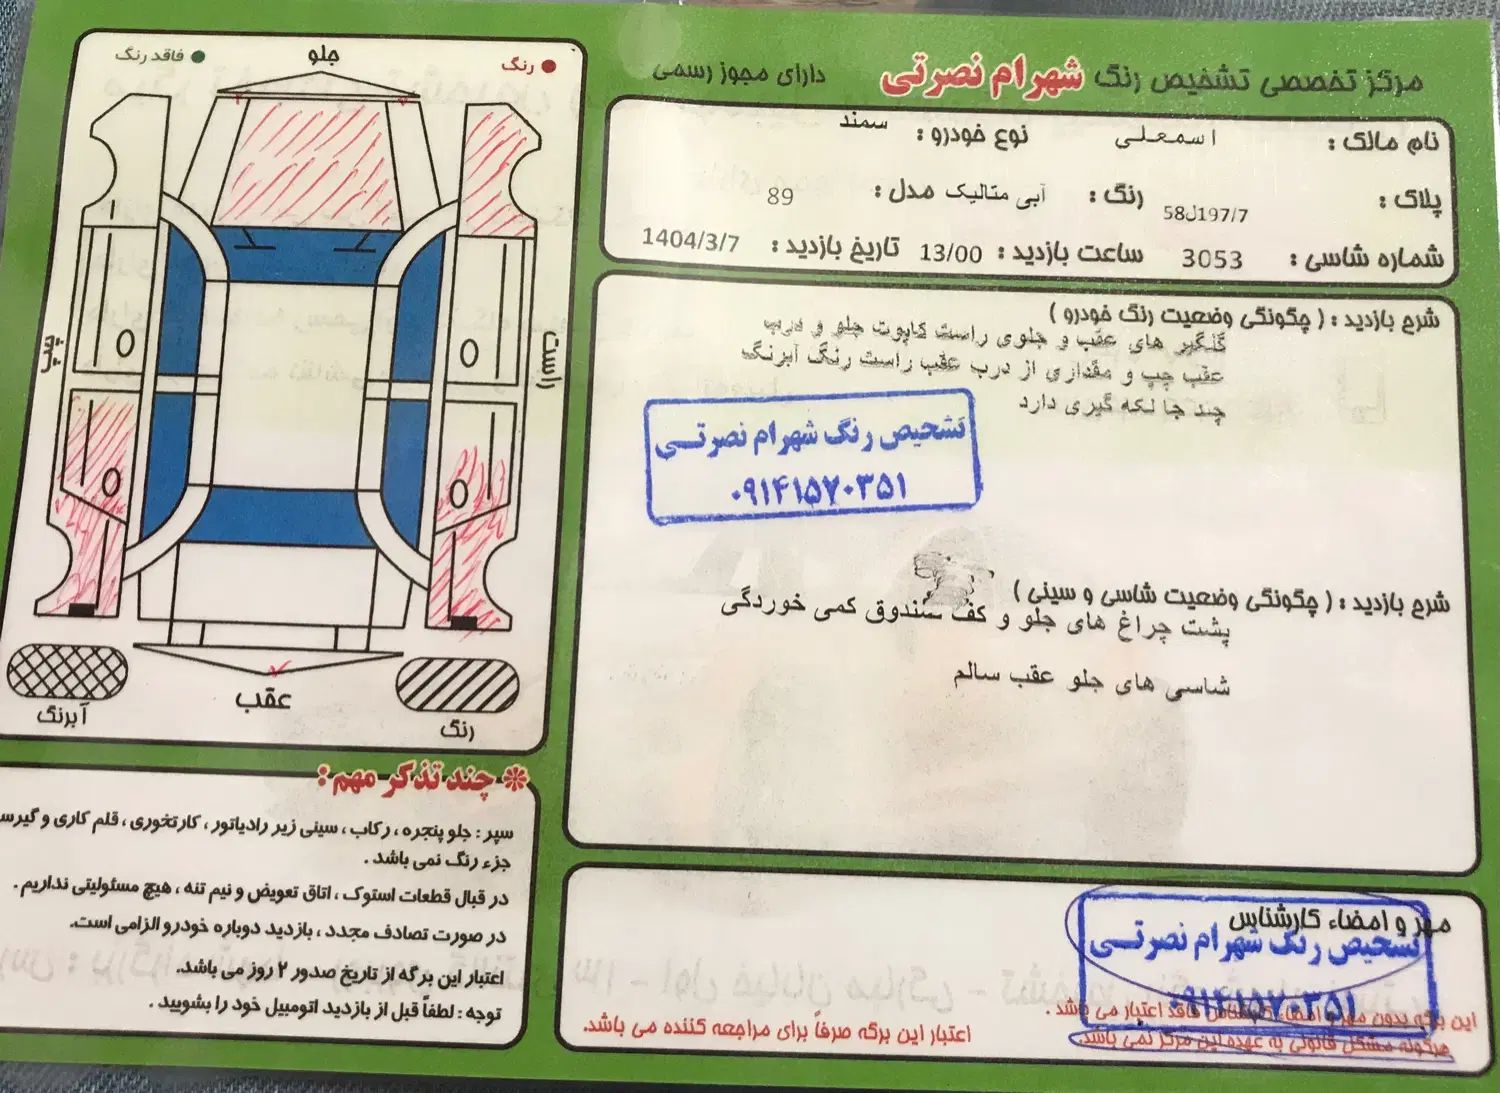 مرکز تخصصی تشخیص رنگ شهرام نصرتی دارای مجوز رسمی
نام مالک : اسمعلی نوع خودرو : سمند
پلاک : 58ل197/7 رنگ : آبی متالیک مدل : 89
شماره شاسی : 3053 ساعت بازدید : 13/00 تاریخ بازدید : 1404/3/7
شرح بازدید : ( چگونگی وضعیت رنگ خودرو )
گلگیر های عقب و جلوی راست کاپوت جلو و درب
عقب چپ و مقداری از درب عقب راست رنگ آبرنگ
چند جا لکه گیری دارد
تشخیص رنگ شهرام نصرتی
۰۹۱۴۱۵۷۰۳۵۱
شرح بازدید : ( چگونگی وضعیت شاسی و سینی )
پشت چراغ های جلو و کف صندوق کمی خوردگی
شاسی های جلو عقب سالم
مهر و امضاء کارشناس
تشخیص رنگ شهرام نصرتی
۰۹۱۴۱۵۷۰۳۵۱
این برگه بدون مهر و امضاء کارشناس فاقد اعتبار می باشد .
هرگونه مشکل قانونی به عهده این مرکز نمی باشد.
اعتبار این برگه صرفاً برای مراجعه کننده می باشد.
رنگ
جلو
فاقد رنگ
راست
چپ
عقب
رنگ
آبرنگ
چند تذکر مهم :
سپر : جلو پنجره ، رکاب ، سینی زیر رادیاتور ، کارتخوری ، قلم کاری و
جزء رنگ نمی باشد .
در قبال قطعات استوک ، اتاق تعویض و نیم تنه ، هیچ مسئولیتی نداریم .
در صورت تصادف مجدد ، بازدید دوباره خودرو الزامی است.
اعتبار این برگه از تاریخ صدور ۲ روز می باشد.
توجه : لطفاً قبل از بازدید اتومبیل خود را بشویید .